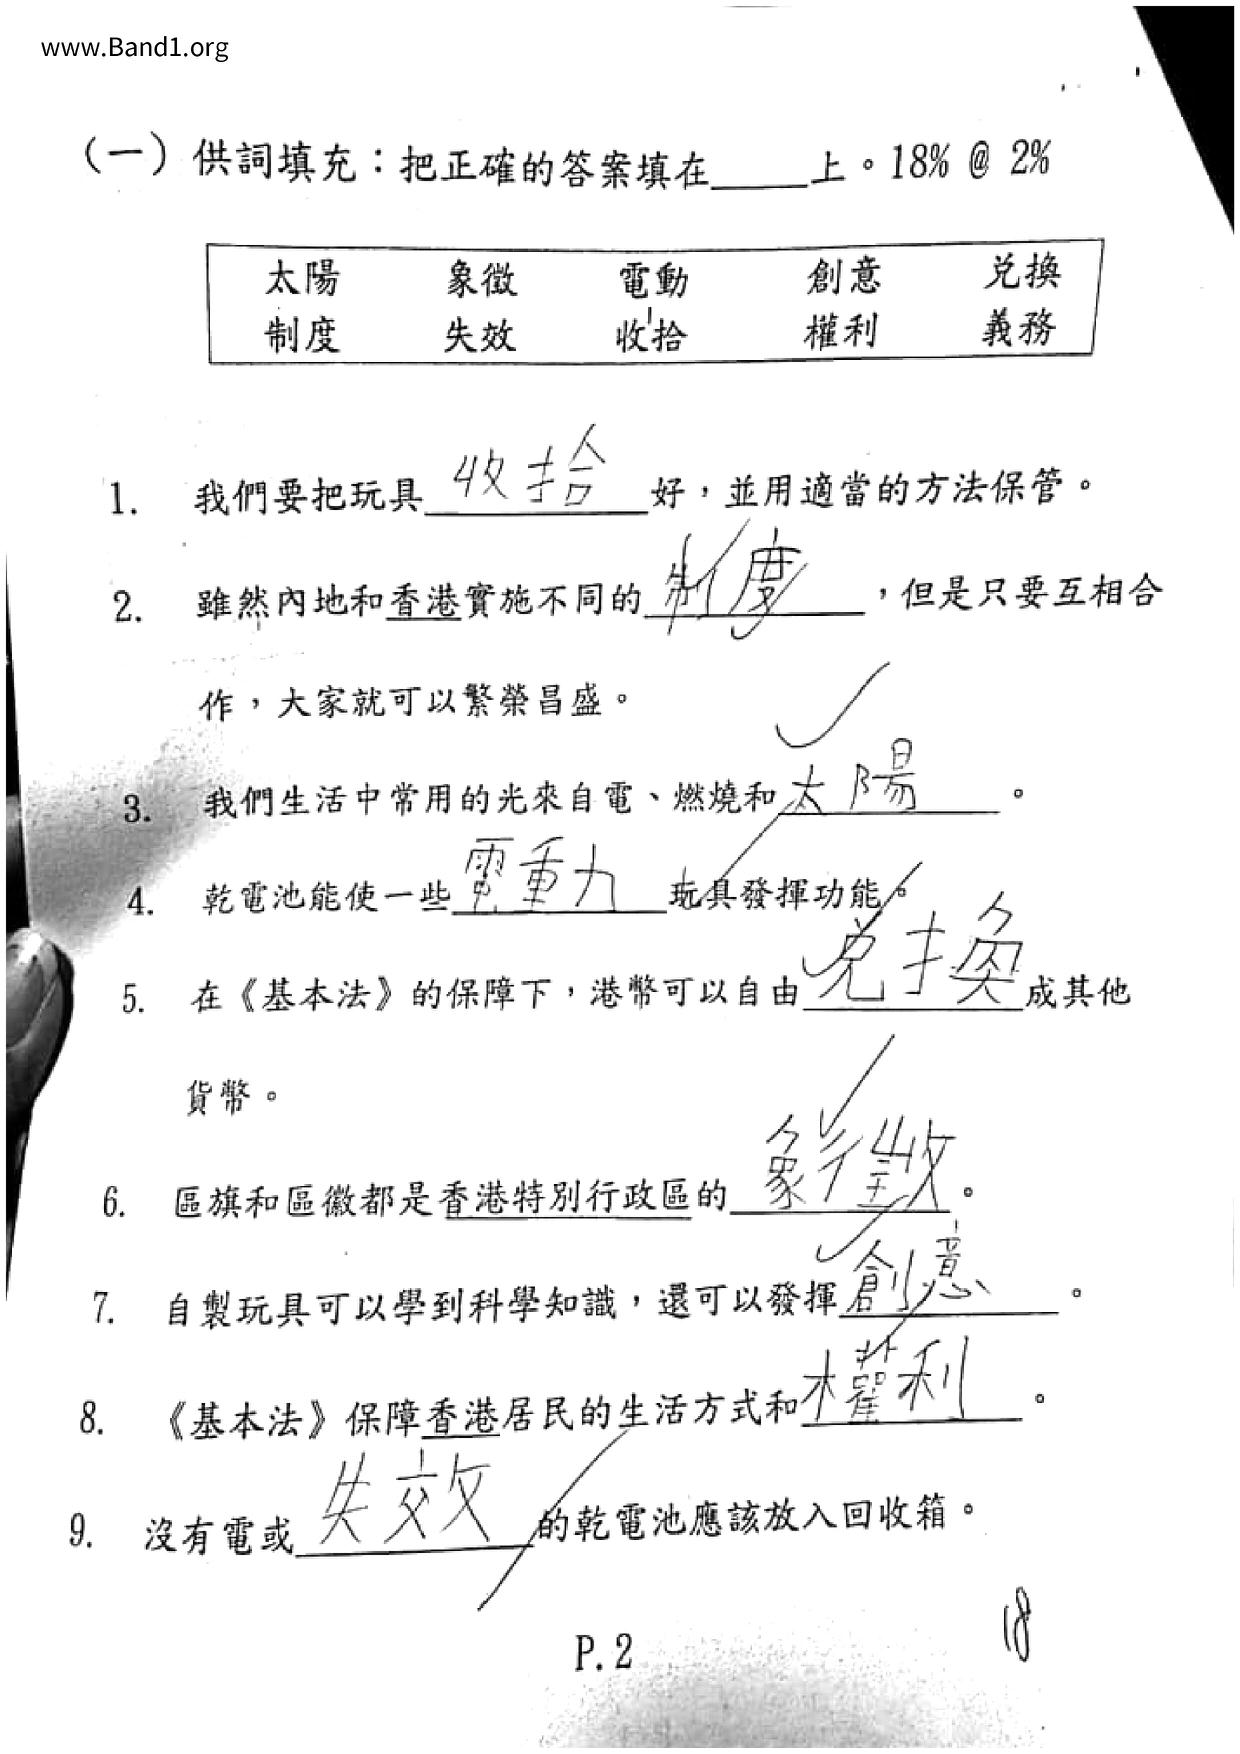 www.Band1.org
（一）供詞填充：把正確的答案填在____上。18% @ 2%
太陽 象徵 電動 創意 兌換
制度 失效 收拾 權利 義務
1. 我們要把玩具收拾好，並用適當的方法保管。
2. 雖然內地和香港實施不同的制度，但是只要互相合
作，大家就可以繁榮昌盛。
3. 我們生活中常用的光來自電、燃燒和太陽。
4. 乾電池能使一些電動玩具發揮功能。
5. 在《基本法》的保障下，港幣可以自由兌換成其他
貨幣。
6. 區旗和區徽都是香港特別行政區的象徵。
7. 自製玩具可以學到科學知識，還可以發揮創意。
8. 《基本法》保障香港居民的生活方式和權利。
9. 沒有電或失效的乾電池應該放入回收箱。
18
P.2